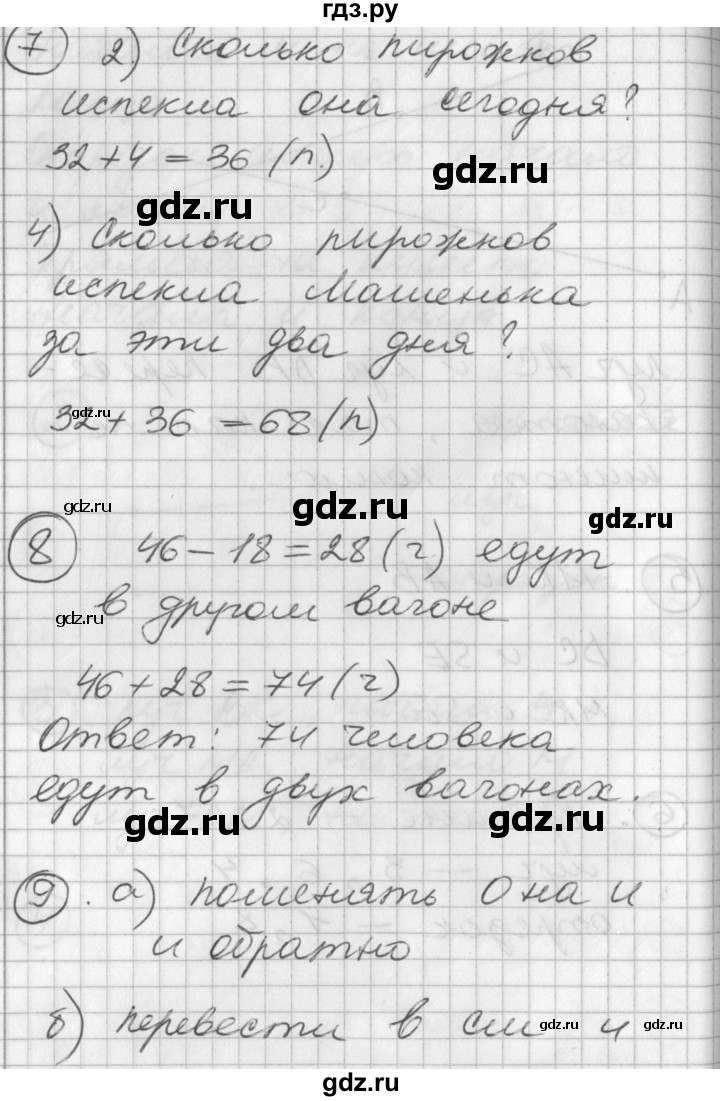 гдз.ру
7 2) Сколько пирожков
испекла она сегодня?
32+4=36 (п.)
gdz.ru
gdz.ru
4) Сколько пирожков
испекла Машенька
за эти два дня?
gdz.ru
32+36=68(п)
gdz.ru
gdz.ru
gdz.ru
8 46-18=28(ч) едут
gdz.ru
в другом вагоне
46+28=74(ч)
Ответ: 74 человека
едут в двух вагонах.
gdz.ru
gdz.ru
9. а) поменять 0 на и
и обратно
б) перевести в см и
gdz.ru
gdz.ru
gdz.ru